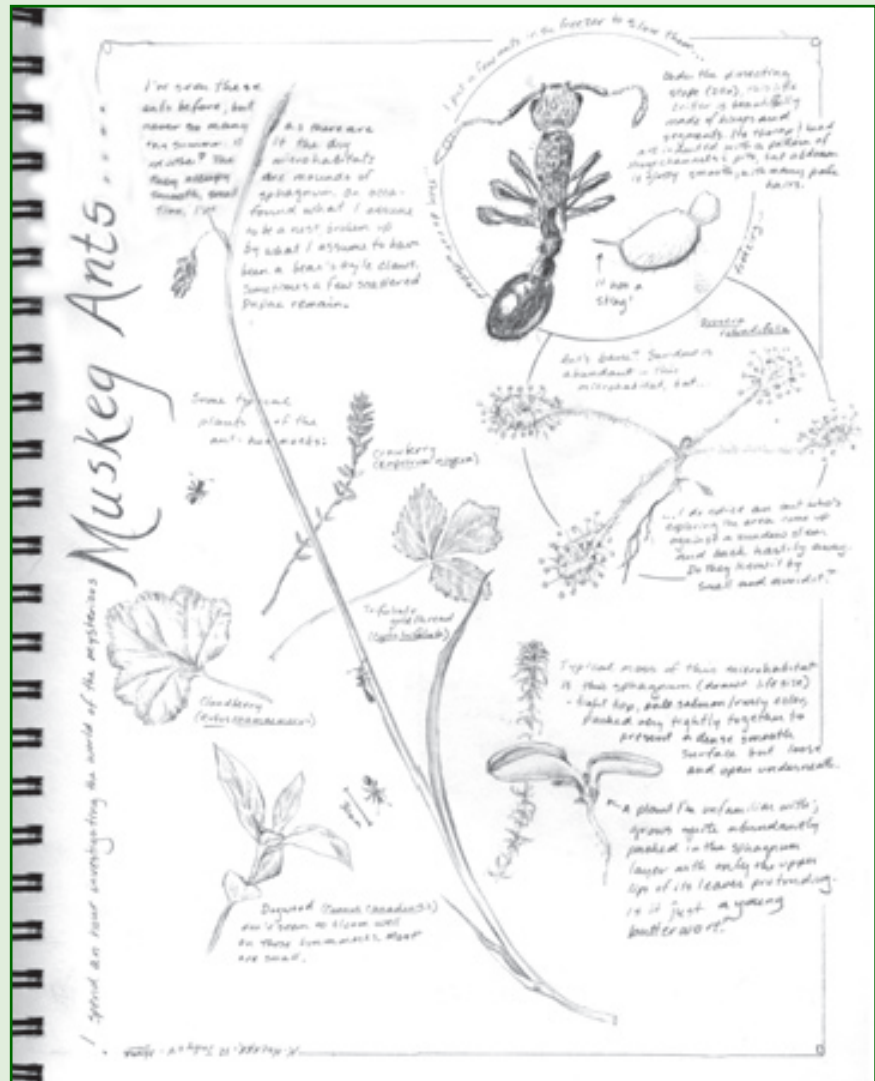 Muskeg Ants....
I spend an hour investigating the world of the mysterious
I've seen these
ants before, but
never so many
this summer. Is
as there are
it the dry
microhabitats
are mounds of
sphagnum. On
found what I assume
to be a nest broken up
by what I assume to have
been a bear's agile claws.
Sometimes a few scattered
pupae remain.
I put a few ants in the freezer to slow them...
Under the dissecting
scope this little
critter is beautifully
made of bumps and
segments. Its thorax/head
are indented with a pattern of
pits, but abdomen
is glossy smooth, with many pale
hairs.
It has a
sting!
freezing...
Drosera
rotundifolia
Ant's bane? Sundew is
abundant in this
microhabitat, but...
...I do notice an ant who's
exploring the area come up
against a sundew stem
and back hastily away.
Do they know it by
smell and avoid it?
Some typical
plants of the
ant-hummocks:
Crowberry
(Empetrum nigrum)
Trifoliate
goldthread
(Coptis trifolia)
Cloudberry
(Rubus chamaemorus)
Typical moss of this microhabitat
is this sphagnum (drawn life size)
- tight top, pale salmon/rusty color,
packed very tightly together to
present a dense smooth
surface but loose
and open underneath.
A plant I'm unfamiliar with;
grows quite abundantly
packed in the sphagnum
layer with only the upper
lip of its leaves protruding.
Is it just a young
butterwort?
Dogwood (Cornus canadensis)
don't seem to bloom well
on these hummocks. Most
are small.